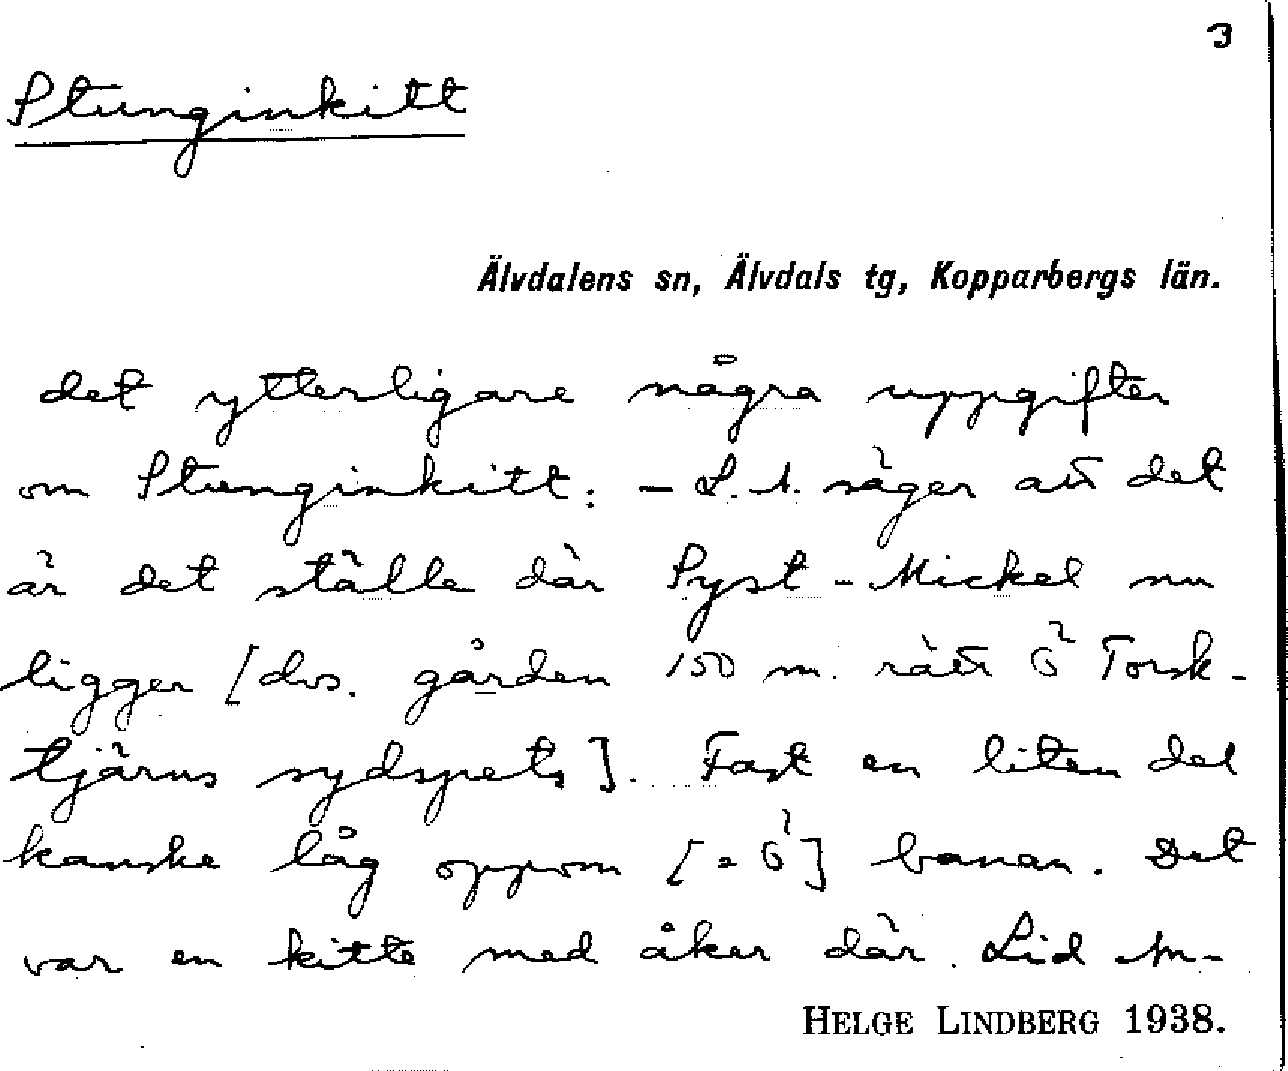 3
Stunginkitt
Älvdalens sn, Älvdals tg, Kopparbergs län.
det ytterligare några uppgifter
om Stunginkitt: - L. A. säger att det
är det ställe där Pyst-Mickel nu
ligger [dvs. gården 150 m. rätt Ö Torsk-
tjärns sydspets]. Fast en liten del
kanske låg oppom [= Ö] banan. Det
var en kitte med åker där. Lid M-
HELGE LINDBERG 1938.